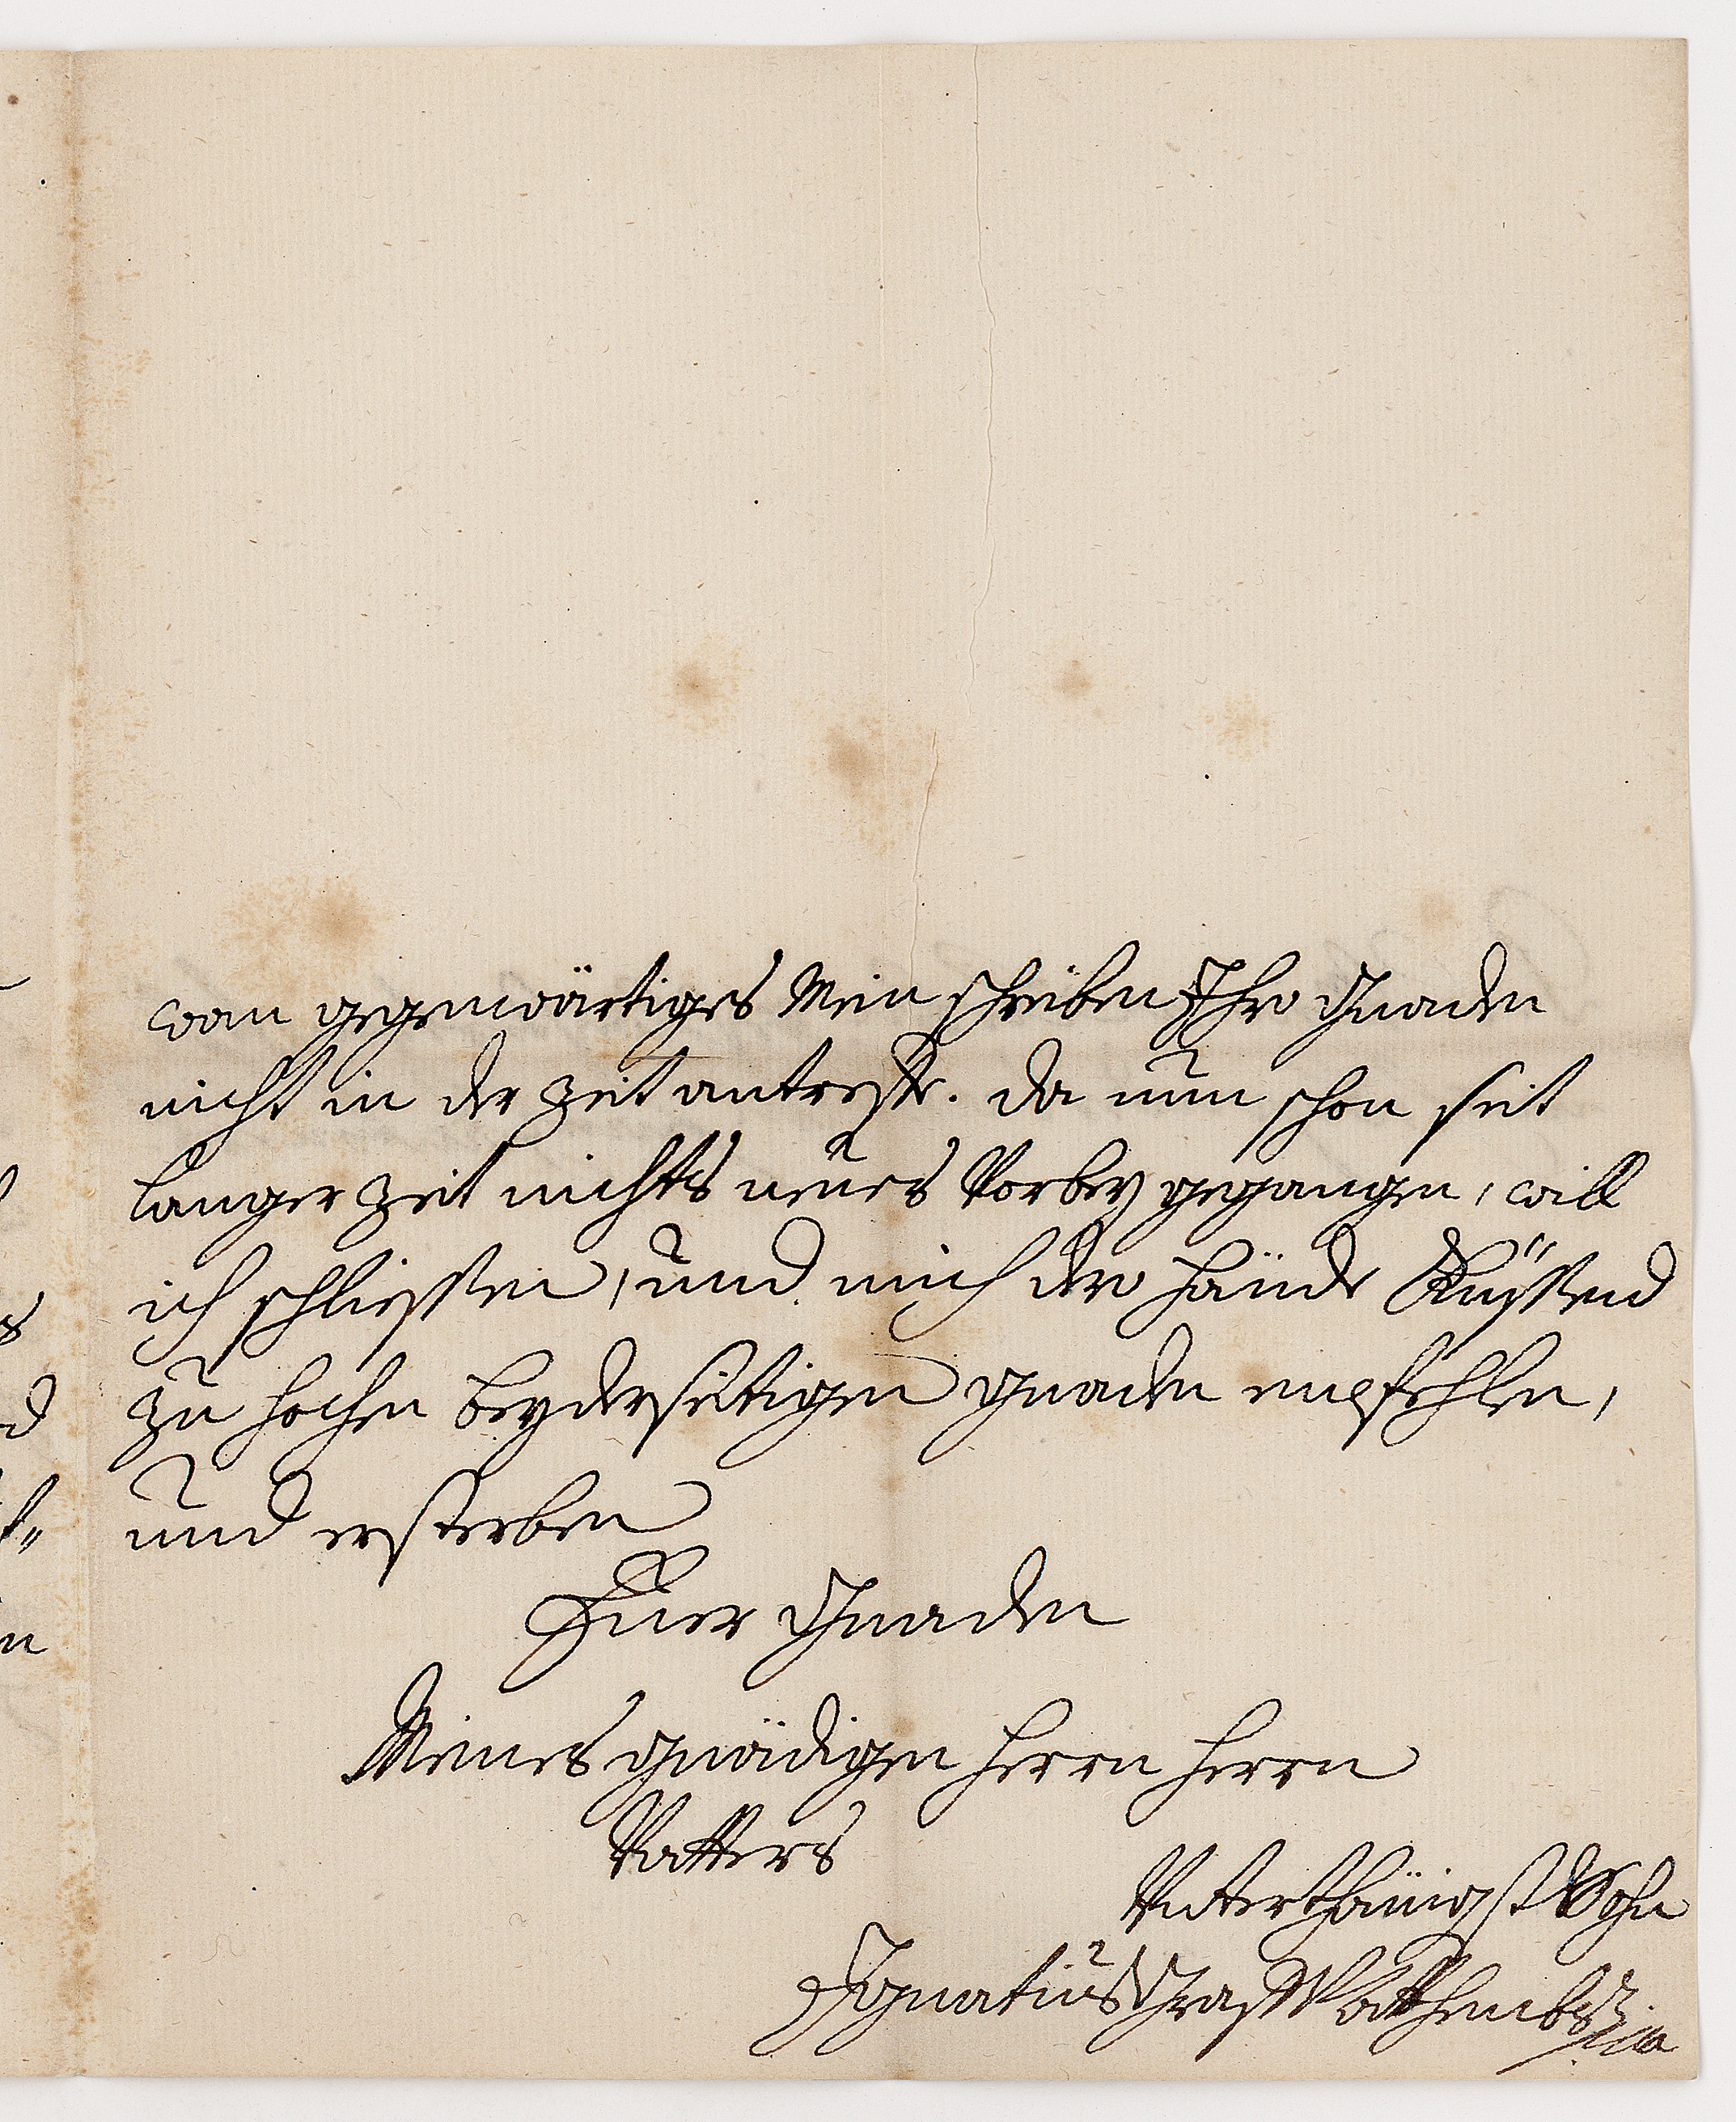 wan gegenwärtiges Mein schreiben Ihro Gnaden
nicht in der Zeit antreffe. da nun schon seit
langer Zeit nichts neues Vorbey gegangen, will
ich schliessen, und mich dero Hände Küssend
zu hochen beyderseitigen gnaden empfehlen,
und ersterben
Euer Gnaden
Meines gnädigen Herrn Herrn
Vatters
Unterthänigst Sohn
Ignatius Graf